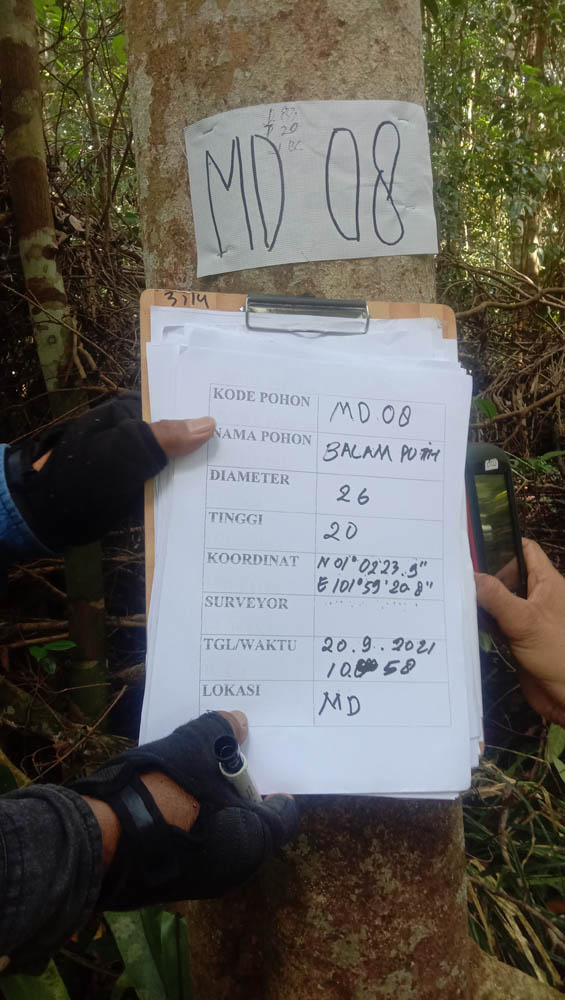 MD 08
3714
KODE POHON MD 08
NAMA POHON BALAM PUTIH
DIAMETER 26
TINGGI 20
KOORDINAT N 01° 02'23.9"
E 101° 59' 20.8"
SURVEYOR
TGL/WAKTU 20.9.2021
10 58
LOKASI MD